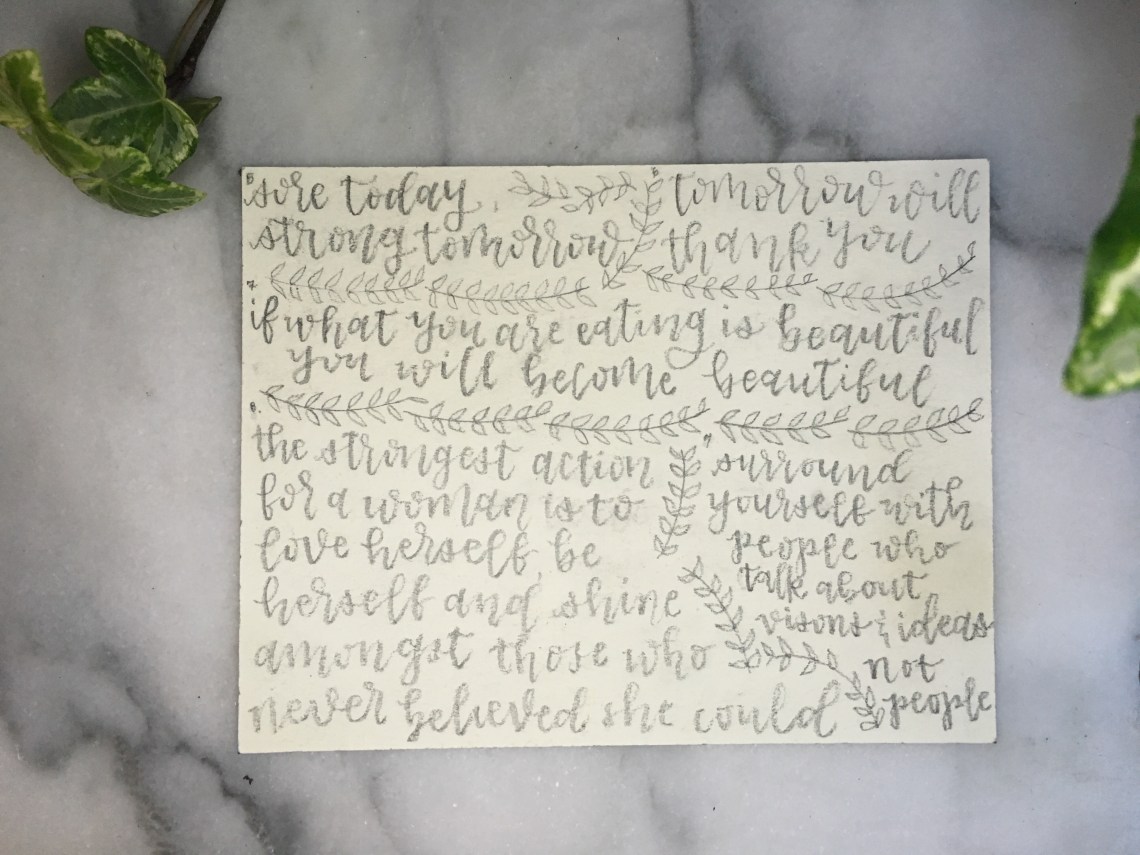 5.
sore today,
strong tomorrow
6.
tomorrow will
thank you
7.
if what you are eating is beautiful
you will become beautiful
8.
the strongest action
for a woman is to
love herself, be
herself and shine
amongst those who
never believed she could
9.
surround
yourself with
people who
talk about
visons & ideas
not
people